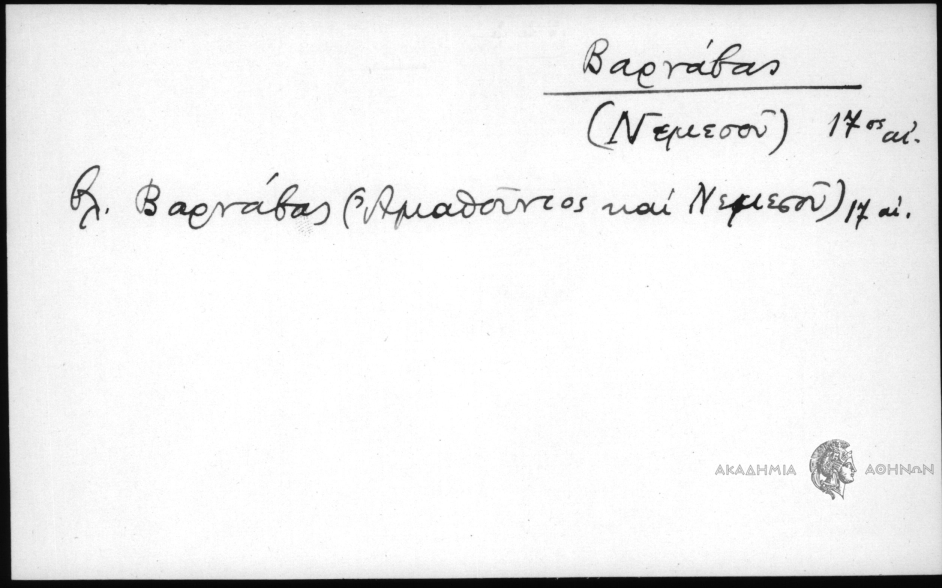 Βαρνάβας
(Νεμεσοῦ) 17ος αἰ.
βλ. Βαρνάβας (Ἀμαθοῦντος καί Νεμεσοῦ) 17 αἰ.
ΑΚΑΔΗΜΙΑ ΑΘΗΝΩΝ